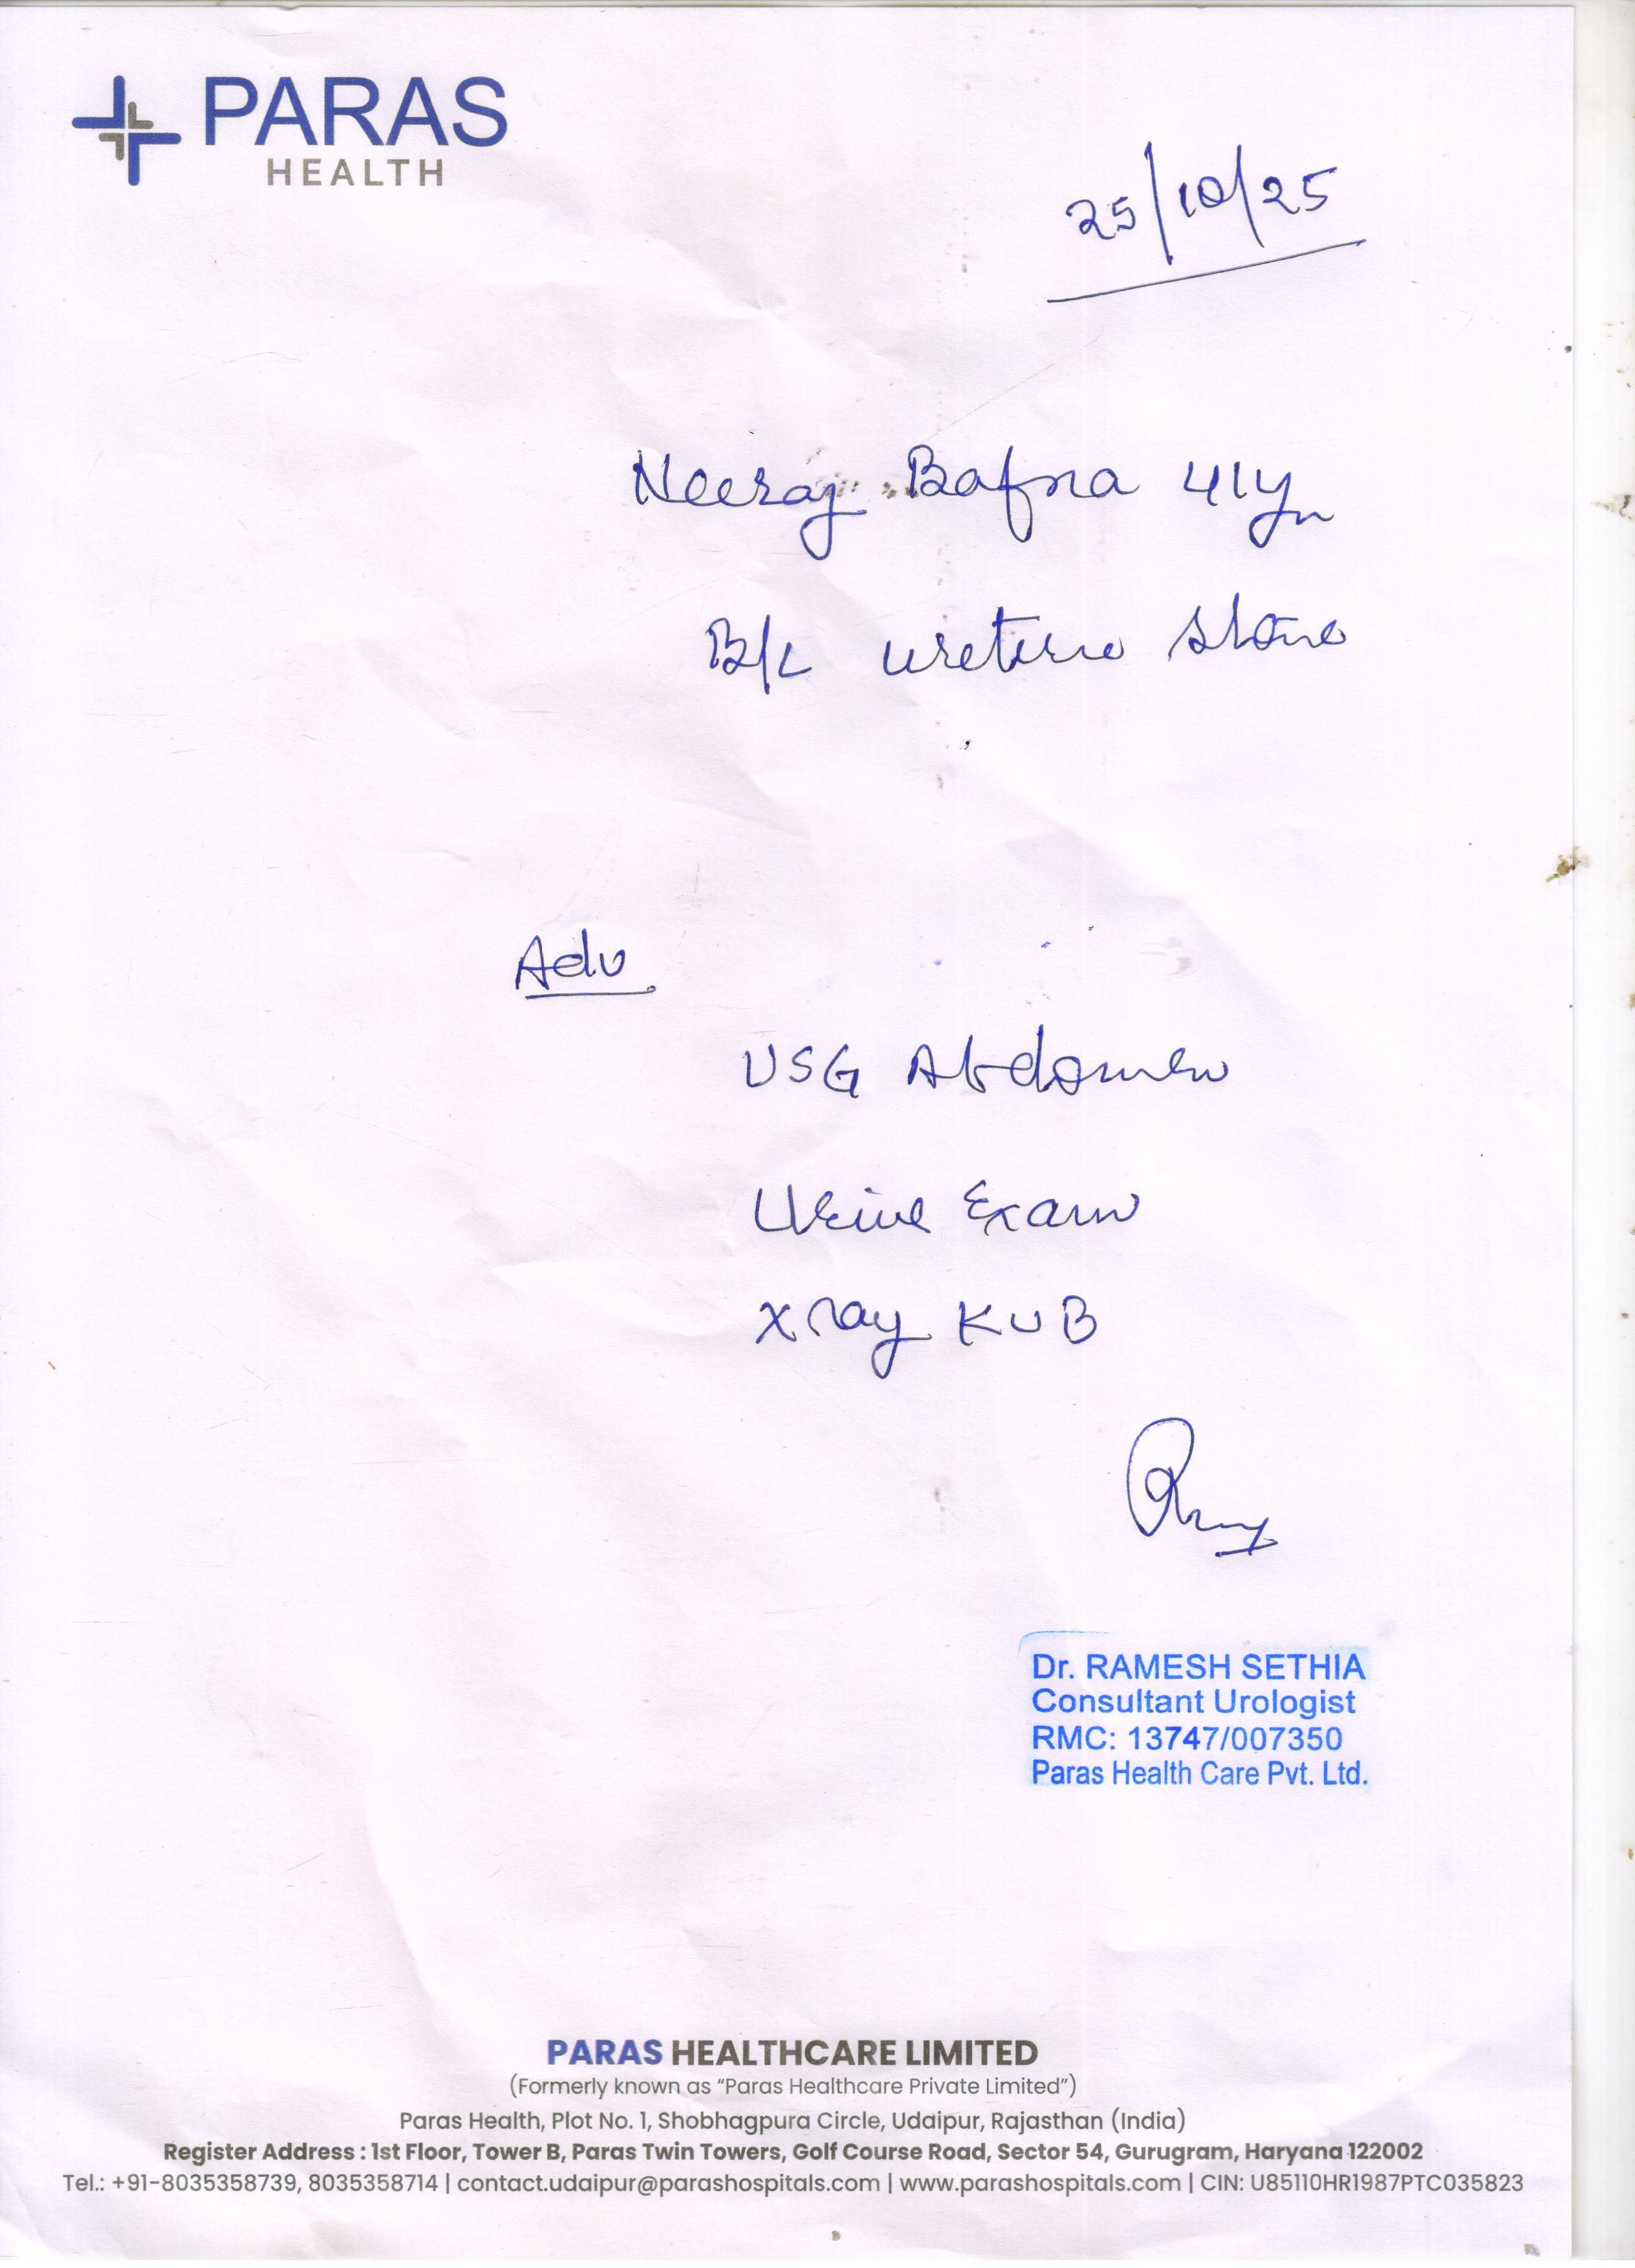 PARAS
HEALTH
25/10/25
Neeraj Bafna 41yr
B/L ureteric stone
Adv
USG Abdomen
Urine Exam
Xray KUB
Dr. RAMESH SETHIA
Consultant Urologist
RMC: 13747/007350
Paras Health Care Pvt. Ltd.
PARAS HEALTHCARE LIMITED
(Formerly known as “Paras Healthcare Private Limited”)
Paras Health, Plot No. 1, Shobhagpura Circle, Udaipur, Rajasthan (India)
Register Address : 1st Floor, Tower B, Paras Twin Towers, Golf Course Road, Sector 54, Gurugram, Haryana 122002
Tel.: +91-8035358739, 8035358714 | contact.udaipur@parashospitals.com | www.parashospitals.com | CIN: U85110HR1987PTC035823